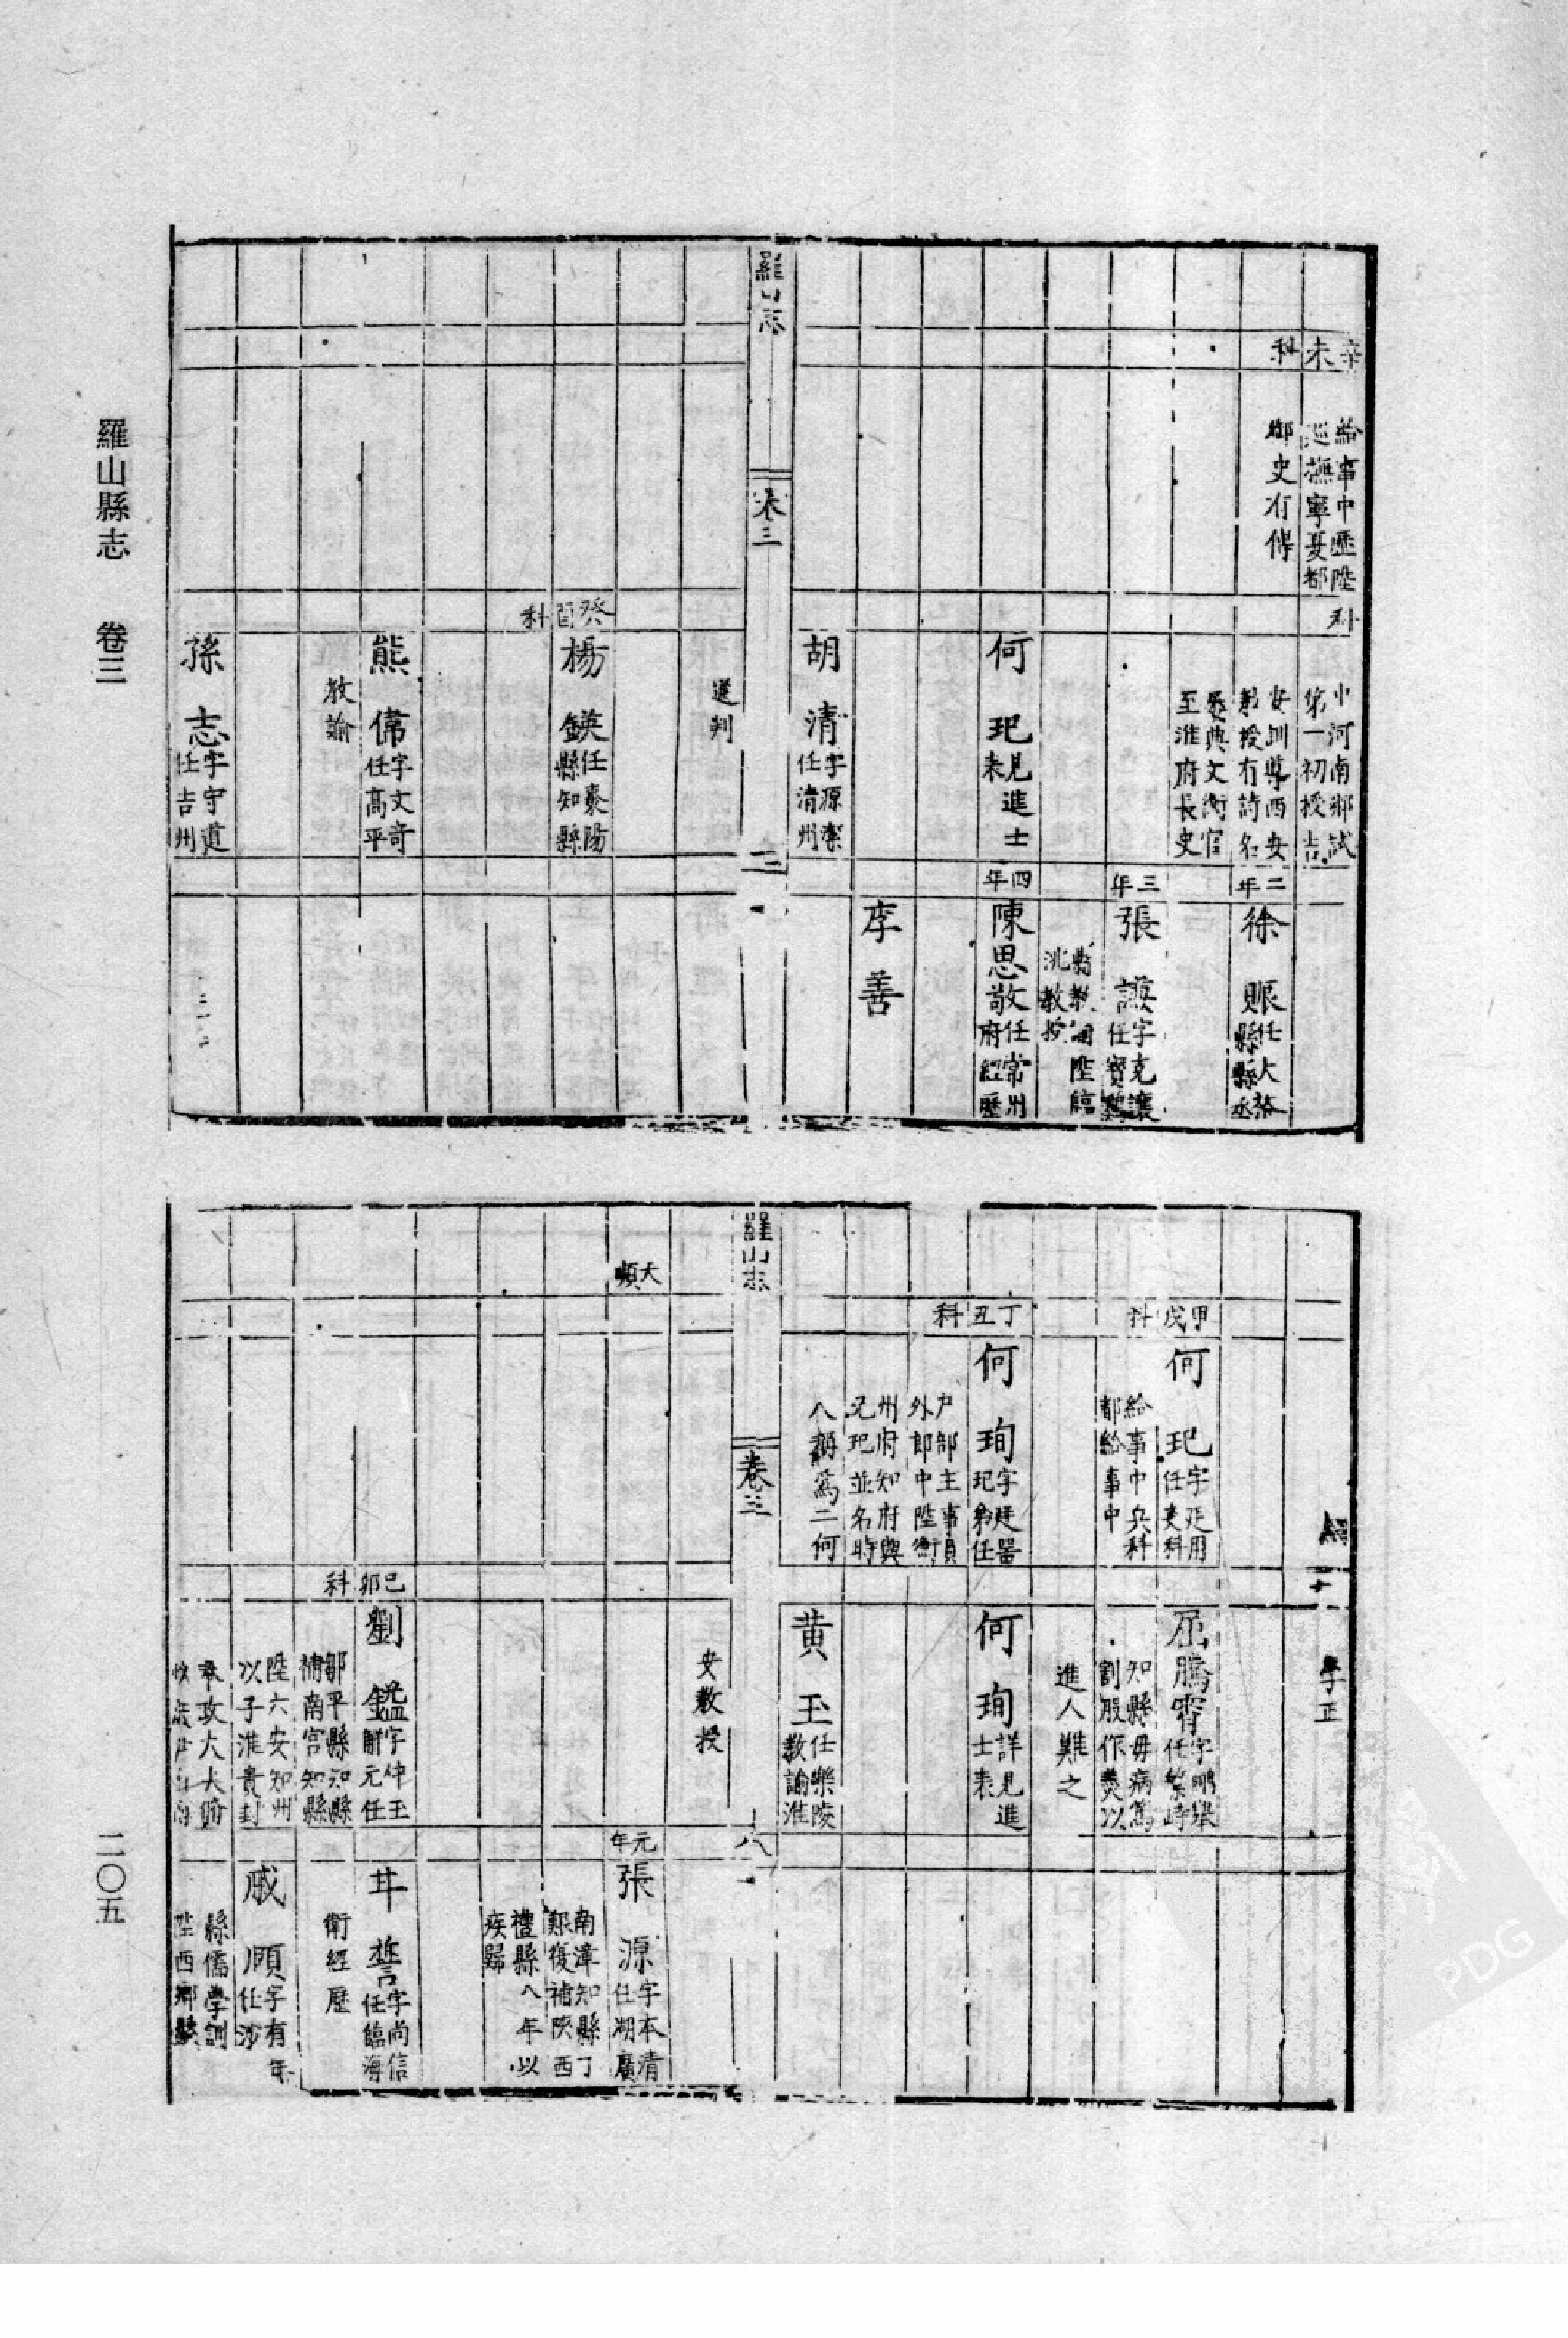 羅山縣志　卷三
二〇五
辛未科
給事中歷陞
巡撫寧夏都
御史有傳
科
中河南鄉試
第一初授吉
安訓導西安
教授有詩名
歷典文衡官
至淮府長史
二年
徐賑任大
縣縣丞
三年
張謨字克讓
任寶
縣教諭陞臨
洮教授
何玘見進士
表
四年
陳思敬任常州
府經歷
李善
胡清字源潔
任清州
羅山志
卷三
選判
癸酉科
楊鍈任棗陽
縣知縣
熊㒞字文奇
任高平
教諭
孫志字守道
任吉州
學正
甲戌科
何玘字廷用
任吏科
給事中
都給事中
屈騰霄字鵬舉
任繁峙
知縣母病篤
割股作羹以
進人難之
丁丑科
何珣字廷器
玘弟任
戶部主事員
外郎中陞衢
州府知府與
兄玘並名時
人稱為二何
何珣詳見進
士表
黃玉任樂陵
教諭淮
羅山志
卷三
八
安教授
天順
元年
張源字本清
任湖廣
南漳知縣丁
艱復補陝西
禮縣八年以
疾歸
己卯科
劉鑑字仲玉
解元任
鄒平縣知縣
補南宮知縣
陞六安知州
以子淮貴封
奉政大夫
井誉字尚信
任臨海
衛經歷
戚順字有年
任涉
縣儒學訓
陞西鄉縣